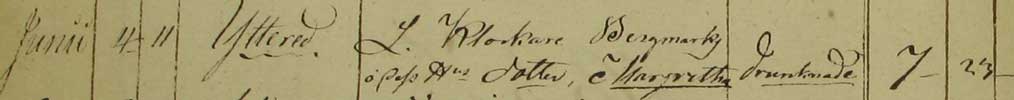 Junii 4 11 Yttered. L. Klockare Bergmarks
Dotter, Margretha Drunknade 7 23